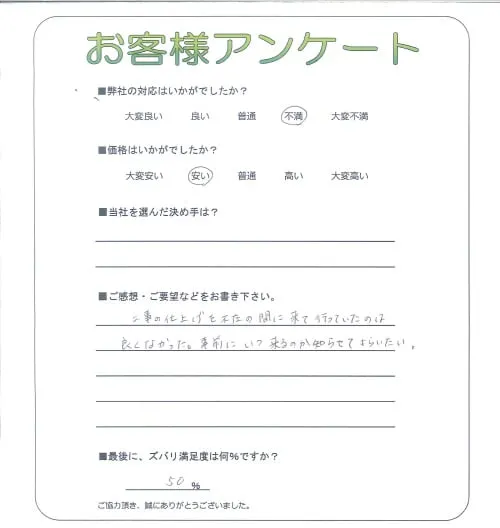 お客様アンケート
■弊社の対応はいかがでしたか？
大変良い 良い 普通 不満 大変不満
■価格はいかがでしたか？
大変安い 安い 普通 高い 大変高い
■当社を選んだ決め手は？
■ご感想・ご要望などをお書き下さい。
工事の仕上げを不在の間に来て行っていたのは
良くなかった。事前にいつ来るのか知らせてもらいたい。
■最後に、ズバリ満足度は何%ですか？
50 %
ご協力頂き、誠にありがとうございました。